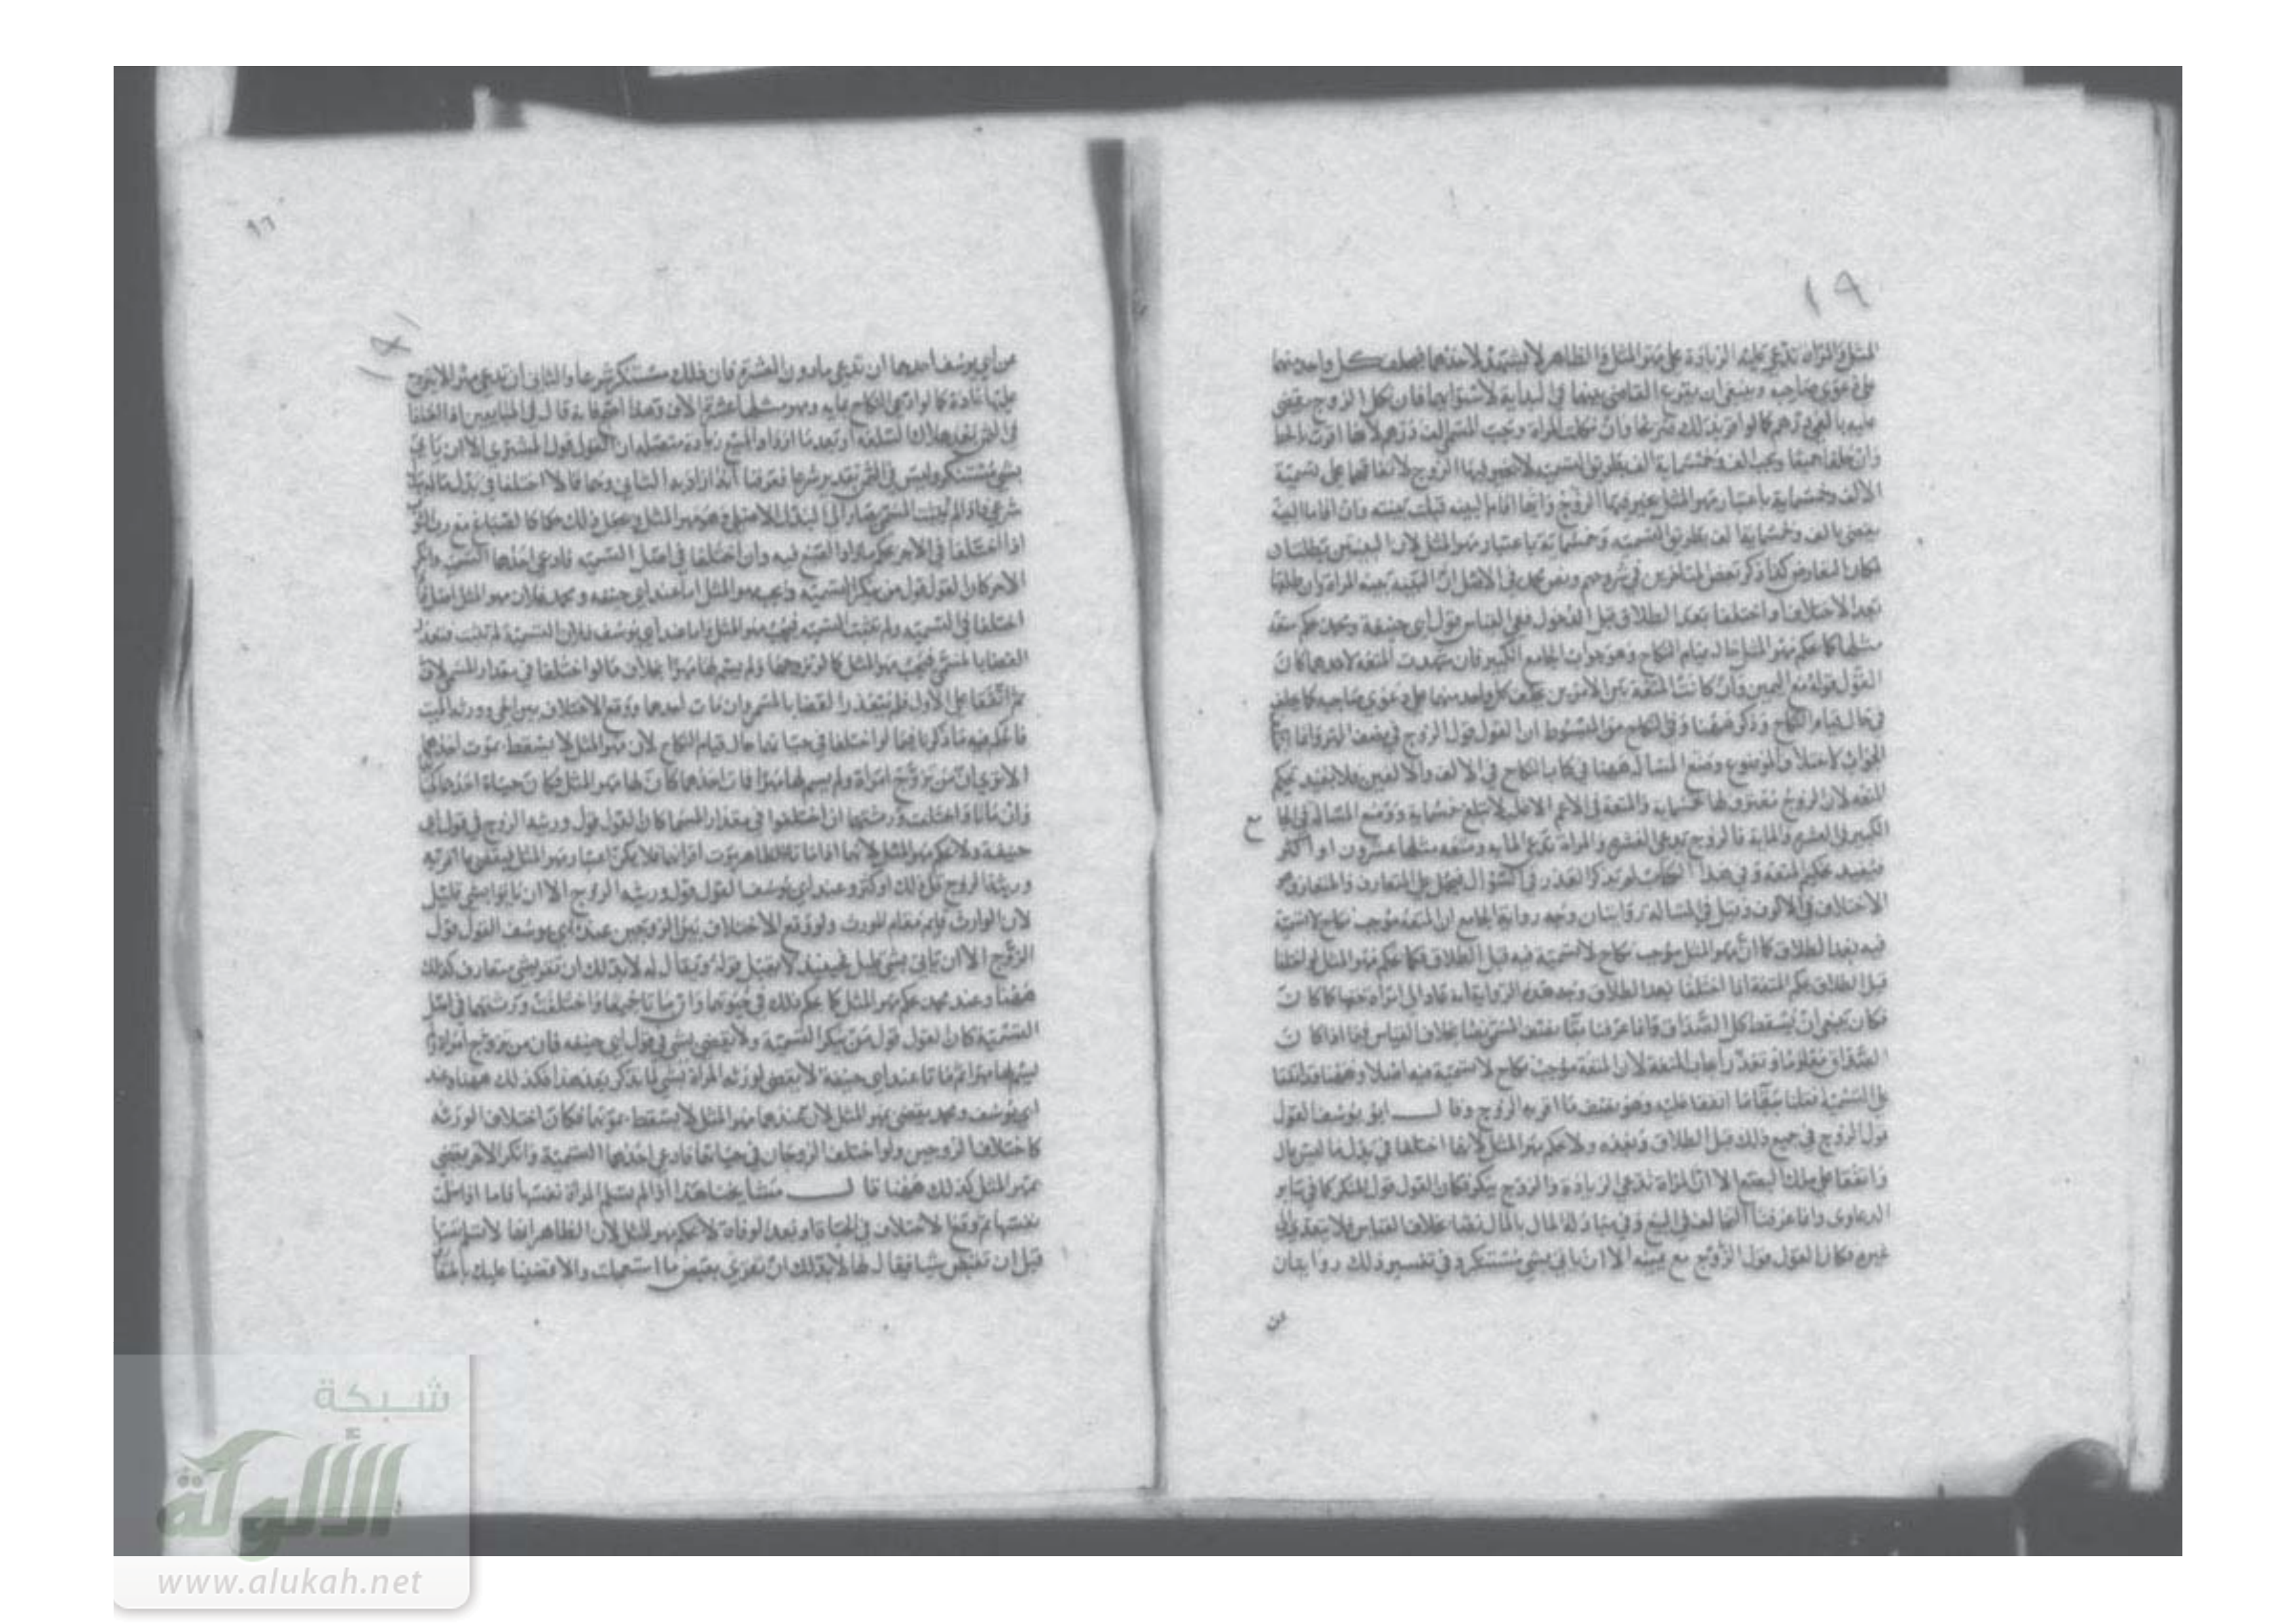 ١٩
المثل والمرأة تدعي عليه الزيادة على مهر المثل والظاهر لا يشهد لاحدهما فيحلف كل واحد منهما
على دعوى صاحبه وينبغي ان يقرع القاضي بينهما في البداية لاستوائهما فان نكل الزوج يقضي
وان حلفا جميعا يجب الف وخمسماية الف بطريق التسمية لا يخير فيها الزوج لاتفاقهما على تسمية
الالف وخمسماية باعتبار مهر المثل يخير فيها الزوج وايهما اقام البينة قبلت بينته وان اقاما البينة
يقضي بالف وخمسماية الف بطريق التسمية وخمسماية باعتبار مهر المثل لان البينتين بطلتا
لمكان التعارض كذا ذكر بعض المتأخرين في شروحهم ونص محمد في الاصل ان البينة بينة المراة وان طلقها
بعد الاختلاف او اختلفا بعد الطلاق قبل الدخول ففي القياس قول ابي حنيفة ومحمد يحكم متعة
مثلها كما يحكم مهر المثل حال قيام النكاح وهو جواب الجامع الكبير فان شهدت المتعة لاحدهما كان
القول قوله مع اليمين وان كانت المتعة بين الامرين يحلف كل واحد منهما على دعوى صاحبه كما
في حال قيام النكاح وذكر ههنا وفي النكاح من المبسوط ان القول قول الزوج في نصف المهر وانما
الجواب لاختلاف الموضوع وضع المسألة ههنا في كتاب النكاح في الالف والالفين فلا يفيد تحكيم
المتعة لان الزوج مقر لها بخمسماية والمتعة في الاعم الاغلب لا تبلغ خمسماية ووضع المسالة في الجا
ح
الكبير في العشرة والماية فالزوج يدعي العشرة والمراة تدعي الماية ومتعة مثلها عشرون او اكثر
فيفيد تحكيم المتعة وفي هذا الكتاب لم يذكر القدر في السؤال فيحمل على المتعارف والمتعارف
الاختلاف في الالوف وقيل في المسالة روايتان وجه رواية الجامع ان المتعة موجب نكاح لا تسمية
فيه بعد الطلاق كما ان مهر المثل موجب نكاح لا تسمية فيه قبل الطلاق فكما يحكم مهر المثل لو اختلفا
قبل الطلاق يحكم المتعة اذا اختلفا بعد الطلاق وجه هذه الرواية انه عاد الى امراة حقها كما كان
فكان ينبغي ان يسقط كل الصداق وانما عرفنا بقاء نصف المسمى نصا بخلاف القياس فيما اذا كان
الصداق معلوما وتعذر ايجاب المتعة لان المتعة موجب نكاح لا تسمية فيه اصلا وههنا قد اتفقا
على التسمية فقلنا ببقاء ما اتفقا عليه وهو نصف ما اقر به الزوج وقال ابو يوسف القول
قول الزوج في جميع ذلك قبل الطلاق وبعده ولا يحكم مهر المثل لانهما اختلفا في بدل ما ليس بمال
واتفقا على ملك البضع الا ان المراة تدعي الزيادة والزوج ينكر فكان القول قول المنكر كما في سائر
الدعاوى وانما عرفنا التحالف في البيع وفي مبادلة المال بالمال نصا بخلاف القياس فلا يتعدى الى
غيره فكان القول قول الزوج مع يمينه الا ان ياتي بشي مستنكر وفي تفسير ذلك روايتان
عن
٩٦
عن ابي يوسف احدهما ان يدعي ما دون العشرة فان ذلك مستنكر شرعا والثاني ان يدعي مهرا لا يتزوج
عليها عادة كما لو ادعى النكاح بماية ومهر مثلها عشرة الاف وهذا
بشي مستنكر وليس في الثمن تقدير شرعا فعرفنا انه اراد به الثاني وهما قالا اختلفا في بدل
شرعي فاذا لم يثبت المسمى يصار الى البدل الاصلي وهو مهر المثل ويجعل ذلك حكما كالصباغ مع رب الثوب
اذا اختلفا في الاجر يحكم ما زاد الصبغ فيه وان اختلفا في اصل التسمية فادعى احدهما التسمية وانكر
الاخر كان القول قول من ينكر التسمية ويجب مهر المثل اما عند ابي حنيفة ومحمد فلان مهر المثل اصل
اختلفا في التسمية ولم تثبت التسمية فيجب مهر المثل واما عند ابي يوسف فلان التسمية لم تثبت فتعذر
القضا بالمسمى فيجب مهر المثل كما لو تزوجها ولم يسم لها مهرا بخلاف ما لو اختلفا في مقدار المسمى لان
ثم اتفقا على الاول فلم يتعذر القضا بالمسمى وان مات احدهما ووقع الاختلاف بين الحي وورثة الميت
فالحكم فيه ما ذكرنا فيما لو اختلفا في حياتهما حال قيام النكاح لان مهر المثل لا يسقط بموت احدهما
الا ترى ان من تزوج امراة ولم يسم لها مهرا فمات احدهما كان لها مهر المثل فكان حياة احدهما
وان ماتا واختلفت ورثتهما ان اختلفوا في مقدار المسمى كان القول قول ورثة الزوج في قول ابي
حنيفة ولا يحكم مهر المثل لانهما اذا ماتا فالظاهر موت اقرانهما فلا يمكن اعتبار مهر المثل فيقضي بما اقر به
ورثة الزوج قل ذلك او كثر وعند ابي يوسف القول قول ورثة الزوج الا ان ياتوا بشي قليل
لان الوارث قايم مقام المورث ولو وقع الاختلاف بين الزوجين عند ابي يوسف القول قول
الزوج الا ان ياتي بشي قليل فحينئذ لا يقبل قوله ويقال له لا بد لك ان تقر بشي متعارف كذلك
ههنا وعند محمد يحكم مهر المثل كما يحكم ذلك في حيوتهما وان ماتا جميعا واختلفت ورثتهما في اصل
التسمية كان القول قول من ينكر التسمية ولا يقضي بشي في قول ابي حنيفة فان من تزوج امراة ولم
يسم لها مهرا ثم ماتا عند ابي حنيفة لا يقضي لورثة المراة بشي لما نذكر بعد هذا فكذلك ههنا وعند
ابي يوسف ومحمد يقضي بمهر المثل لان عندهما مهر المثل لا يسقط بموتهما فكان اختلاف الورثة
كاختلاف الزوجين ولو اختلف الزوجان في حياتهما فادعى احدهما التسمية وانكر الاخر يقضي
بمهر المثل كذلك ههنا قال مشايخنا هذا اذا لم تسلم المراة نفسها فاما اذا سلمت
نفسها ثم وقع الاختلاف في الحياة او بعد الوفاة لا يحكم مهر المثل لان الظاهر انها لا تسلم نفسها
قبل ان تقبض شيا فيقال لها لا بد لك ان تقري بقبض ما استعجلت والا قضينا عليك
شبكة
الألوكة
www.alukah.net